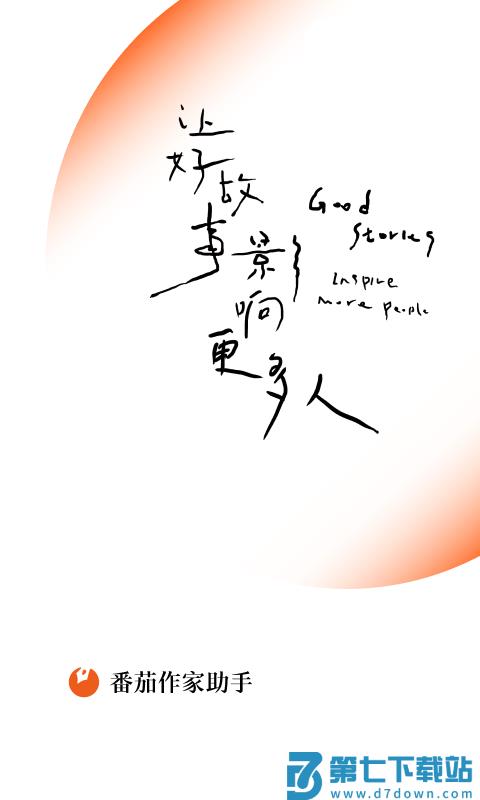 让
好故
事影
响
更多人
Good
Stories
Inspire
more people
番茄作家助手
第七下载站
www.d7down.com